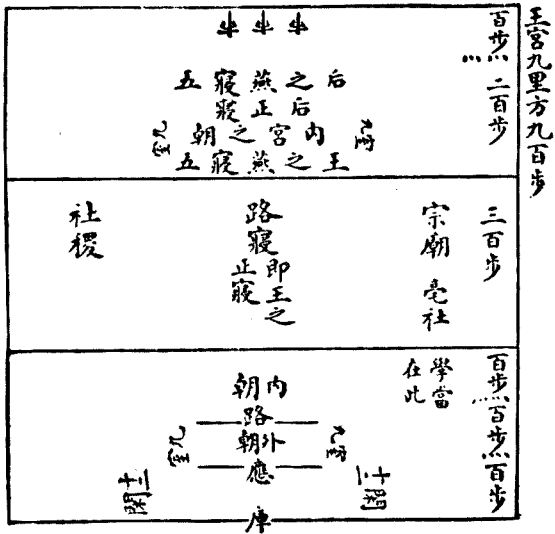 王宮九里方九百步
百步
二百步
后之燕寢五
后正寢
九室
內宮之朝
九室
王之燕寢五
三百步
宗廟 亳社
路寢
即王之正寢
社稷
百步
百步
百步
學當在此
內朝
路
九室
外朝
九室
應
十二閑
十二閑
庫